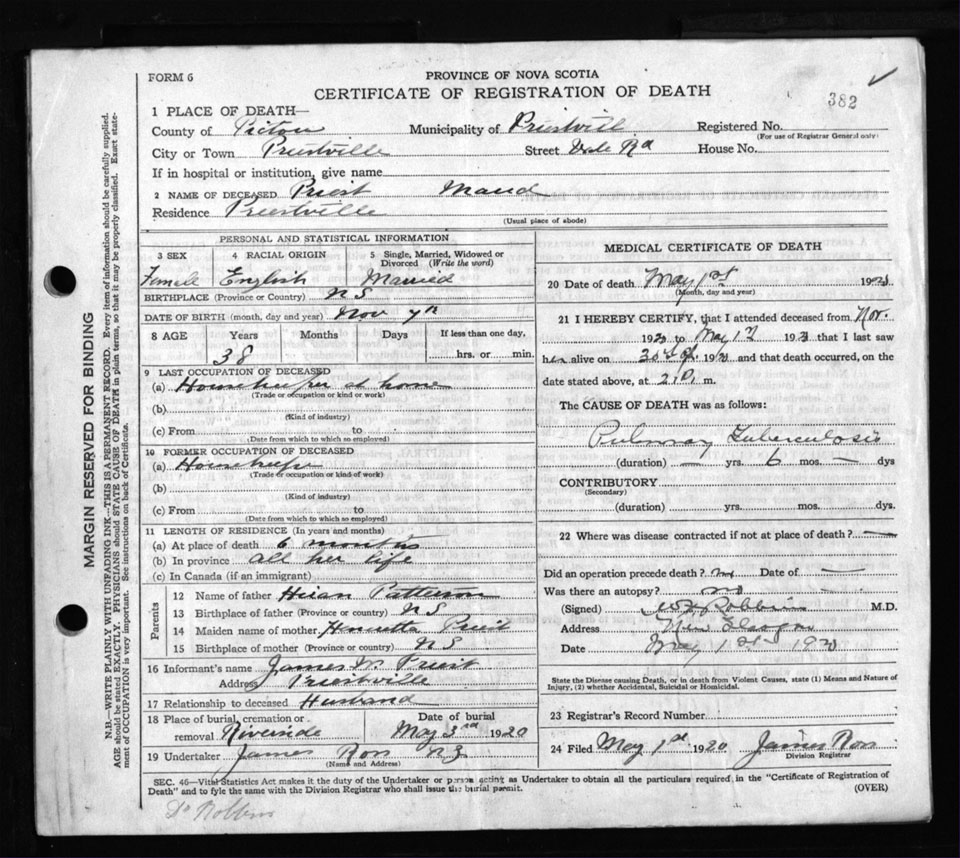 FORM 6
PROVINCE OF NOVA SCOTIA
CERTIFICATE OF REGISTRATION OF DEATH
382
1 PLACE OF DEATH—
County of Pictou Municipality of Priestvill Registered No.
(For use of Registrar General only)
City or Town Priestville Street Vale Rd House No.
If in hospital or institution, give name
2 NAME OF DECEASED Priest Maud
Residence Priestville
(Usual place of abode)
MARGIN RESERVED FOR BINDING
N.B.—WRITE PLAINLY WITH UNFADING INK—THIS IS A PERMANENT RECORD. Every item of information should be carefully supplied.
AGE should be stated EXACTLY. PHYSICIANS should STATE CAUSE OF DEATH in plain terms, so that it may be properly classified. Exact state-
ment of OCCUPATION is very important. See instructions on back of Certificate.
PERSONAL AND STATISTICAL INFORMATION
3 SEX 4 RACIAL ORIGIN 5 Single, Married, Widowed or
Divorced (Write the word)
Female English Married
BIRTHPLACE (Province or Country) N S
DATE OF BIRTH (month, day and year) Nov 7th
8 AGE Years Months Days If less than one day,
38 hrs. or min.
9 LAST OCCUPATION OF DECEASED
(a) Housekeeper at home
(Trade or occupation or kind or work)
(b)
(Kind of industry)
(c) From to
(Date from which to which so employed)
10 FORMER OCCUPATION OF DECEASED
(a) Housekeeper
(Trade or occupation or kind of work)
(b)
(Kind of industry)
(c) From to
(Date from which to which so employed)
11 LENGTH OF RESIDENCE (In years and months)
(a) At place of death 6 months
(b) In province all her life
(c) In Canada (if an immigrant)
Parents
12 Name of father Hiran Patterson
13 Birthplace of father (Province or country) N S
14 Maiden name of mother Henretta Priest
15 Birthplace of mother (Province or country) N S
16 Informant's name James W. Priest
Address Priestville
17 Relationship to deceased Husband
18 Place of burial, cremation or Date of burial
removal Riverside May 3rd 1920
19 Undertaker James Ross
(Name and Address)
MEDICAL CERTIFICATE OF DEATH
20 Date of death May 1st 1920
(Month, day and year)
21 I HEREBY CERTIFY, that I attended deceased from Nov.
192 to May 1st 192 that I last saw
her alive on 30 192 and that death occurred, on the
date stated above, at m.
The CAUSE OF DEATH was as follows:
Pulmonary Tuberculosis
(duration) — yrs. 6 mos. — dys
CONTRIBUTORY
(Secondary)
(duration) yrs. mos. dys.
22 Where was disease contracted if not at place of death? —
Did an operation precede death? no Date of —
Was there an autopsy? no
(Signed) Robbins M.D.
Address New Glasgow
Date May 1st 1920
State the Disease causing Death, or in death from Violent Causes, state (1) Means and Nature of
Injury, (2) whether Accidental, Suicidal or Homicidal.
23 Registrar's Record Number
24 Filed May 1st 1920 James Ross
Division Registrar
SEC. 46—Vital Statistics Act makes it the duty of the Undertaker or person acting as Undertaker to obtain all the particulars required in the "Certificate of Registration of
Death" and to fyle the same with the Division Registrar who shall issue the burial permit. (OVER)
Dr Robbins